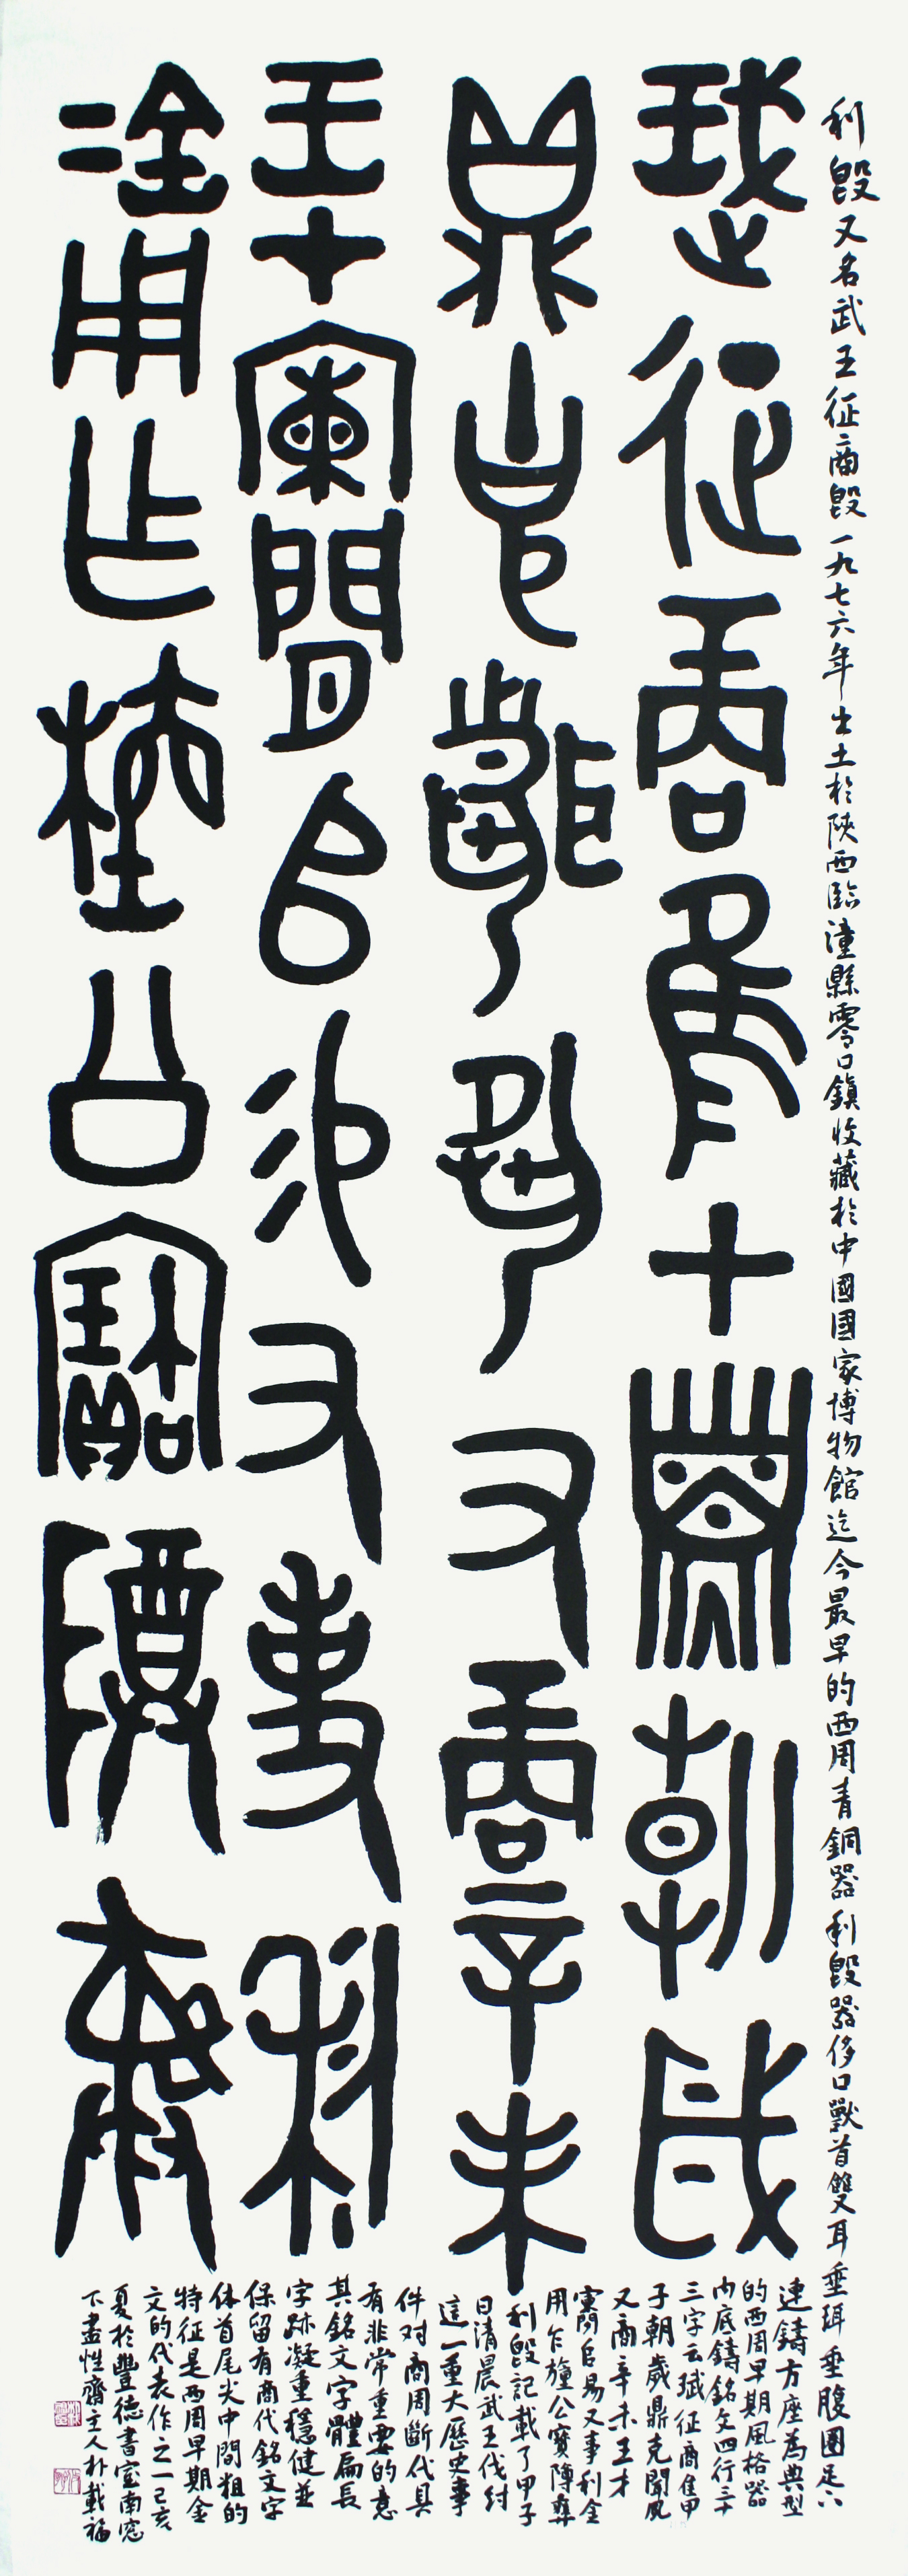 珷征商隹甲子朝歲
鼎克聞夙又商辛未
王才闌𠂤易又事利
金用乍旜公寶𨺅彝
利𣪘又名武王征商𣪘一九七六年出土於陝西臨潼縣零口鎮收藏於中國國家博物館迄今最早的西周青銅器利𣪘器侈口獸首雙耳垂珥垂腹圈足下
連鑄方座為典型
的西周早期風格器
内底鑄銘文四行三十
三字云珷征商隹甲
子朝歲鼎克聞夙
又商辛未王才
𠂤易又事利金
用乍旜公寶𨺅彝
利𣪘記載了甲子
日清晨武王伐紂
這一重大歷史事
件对商周斷代具
有非常重要的意
其銘文字體扁長
字跡凝重穩健並
保留有商代銘文字
体首尾尖中間粗的
特征是西周早期金
文的代表作之一己亥
夏於豐德書室南窓
下盡性齋主人朴載福